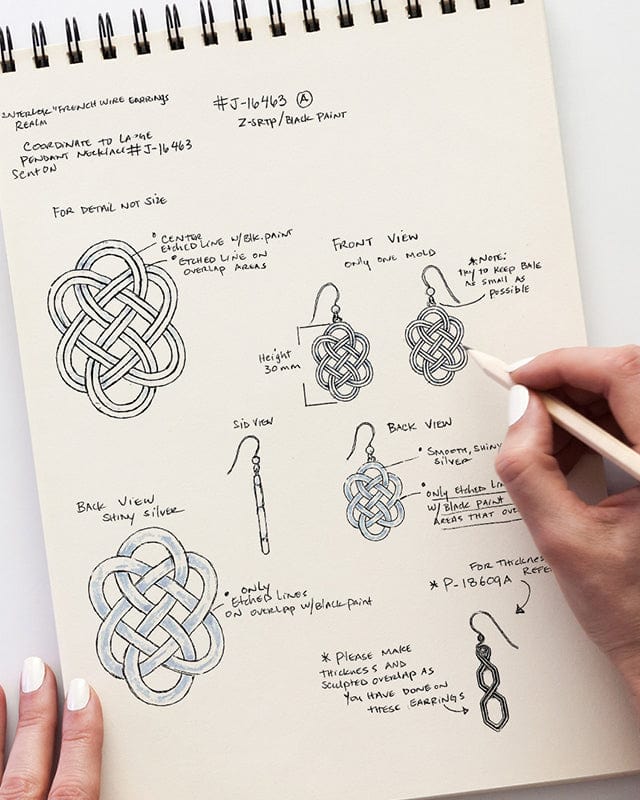 "INTERLOCK" FRENCH WIRE EARRINGS
REALM
COORDINATE TO LARGE
PENDANT NECKLACE #J-16463
SENT ON
#J-16463 A
Z-SRTP/BLACK PAINT
FOR DETAIL NOT SIZE
• CENTER
ETCHED LINE W/BLK. PAINT
• ETCHED LINE ON
OVERLAP AREAS
FRONT VIEW
ONLY ONE MOLD
*NOTE:
TRY TO KEEP BALE
AS SMALL AS
POSSIBLE
Height
30mm
SID VIEW
BACK VIEW
• SMOOTH, SHINY
SILVER
• ONLY ETCHED LIN
W/ BLACK PAINT
AREAS THAT OVE
BACK VIEW
SHINY SILVER
• ONLY
ETCHED LINES
ON OVERLAP W/BLACK PAINT
FOR THICKNES
REFE
* P-18609A
* PLEASE MAKE
THICKNESS AND
SCULPTED OVERLAP AS
YOU HAVE DONE ON
THESE EARRINGS